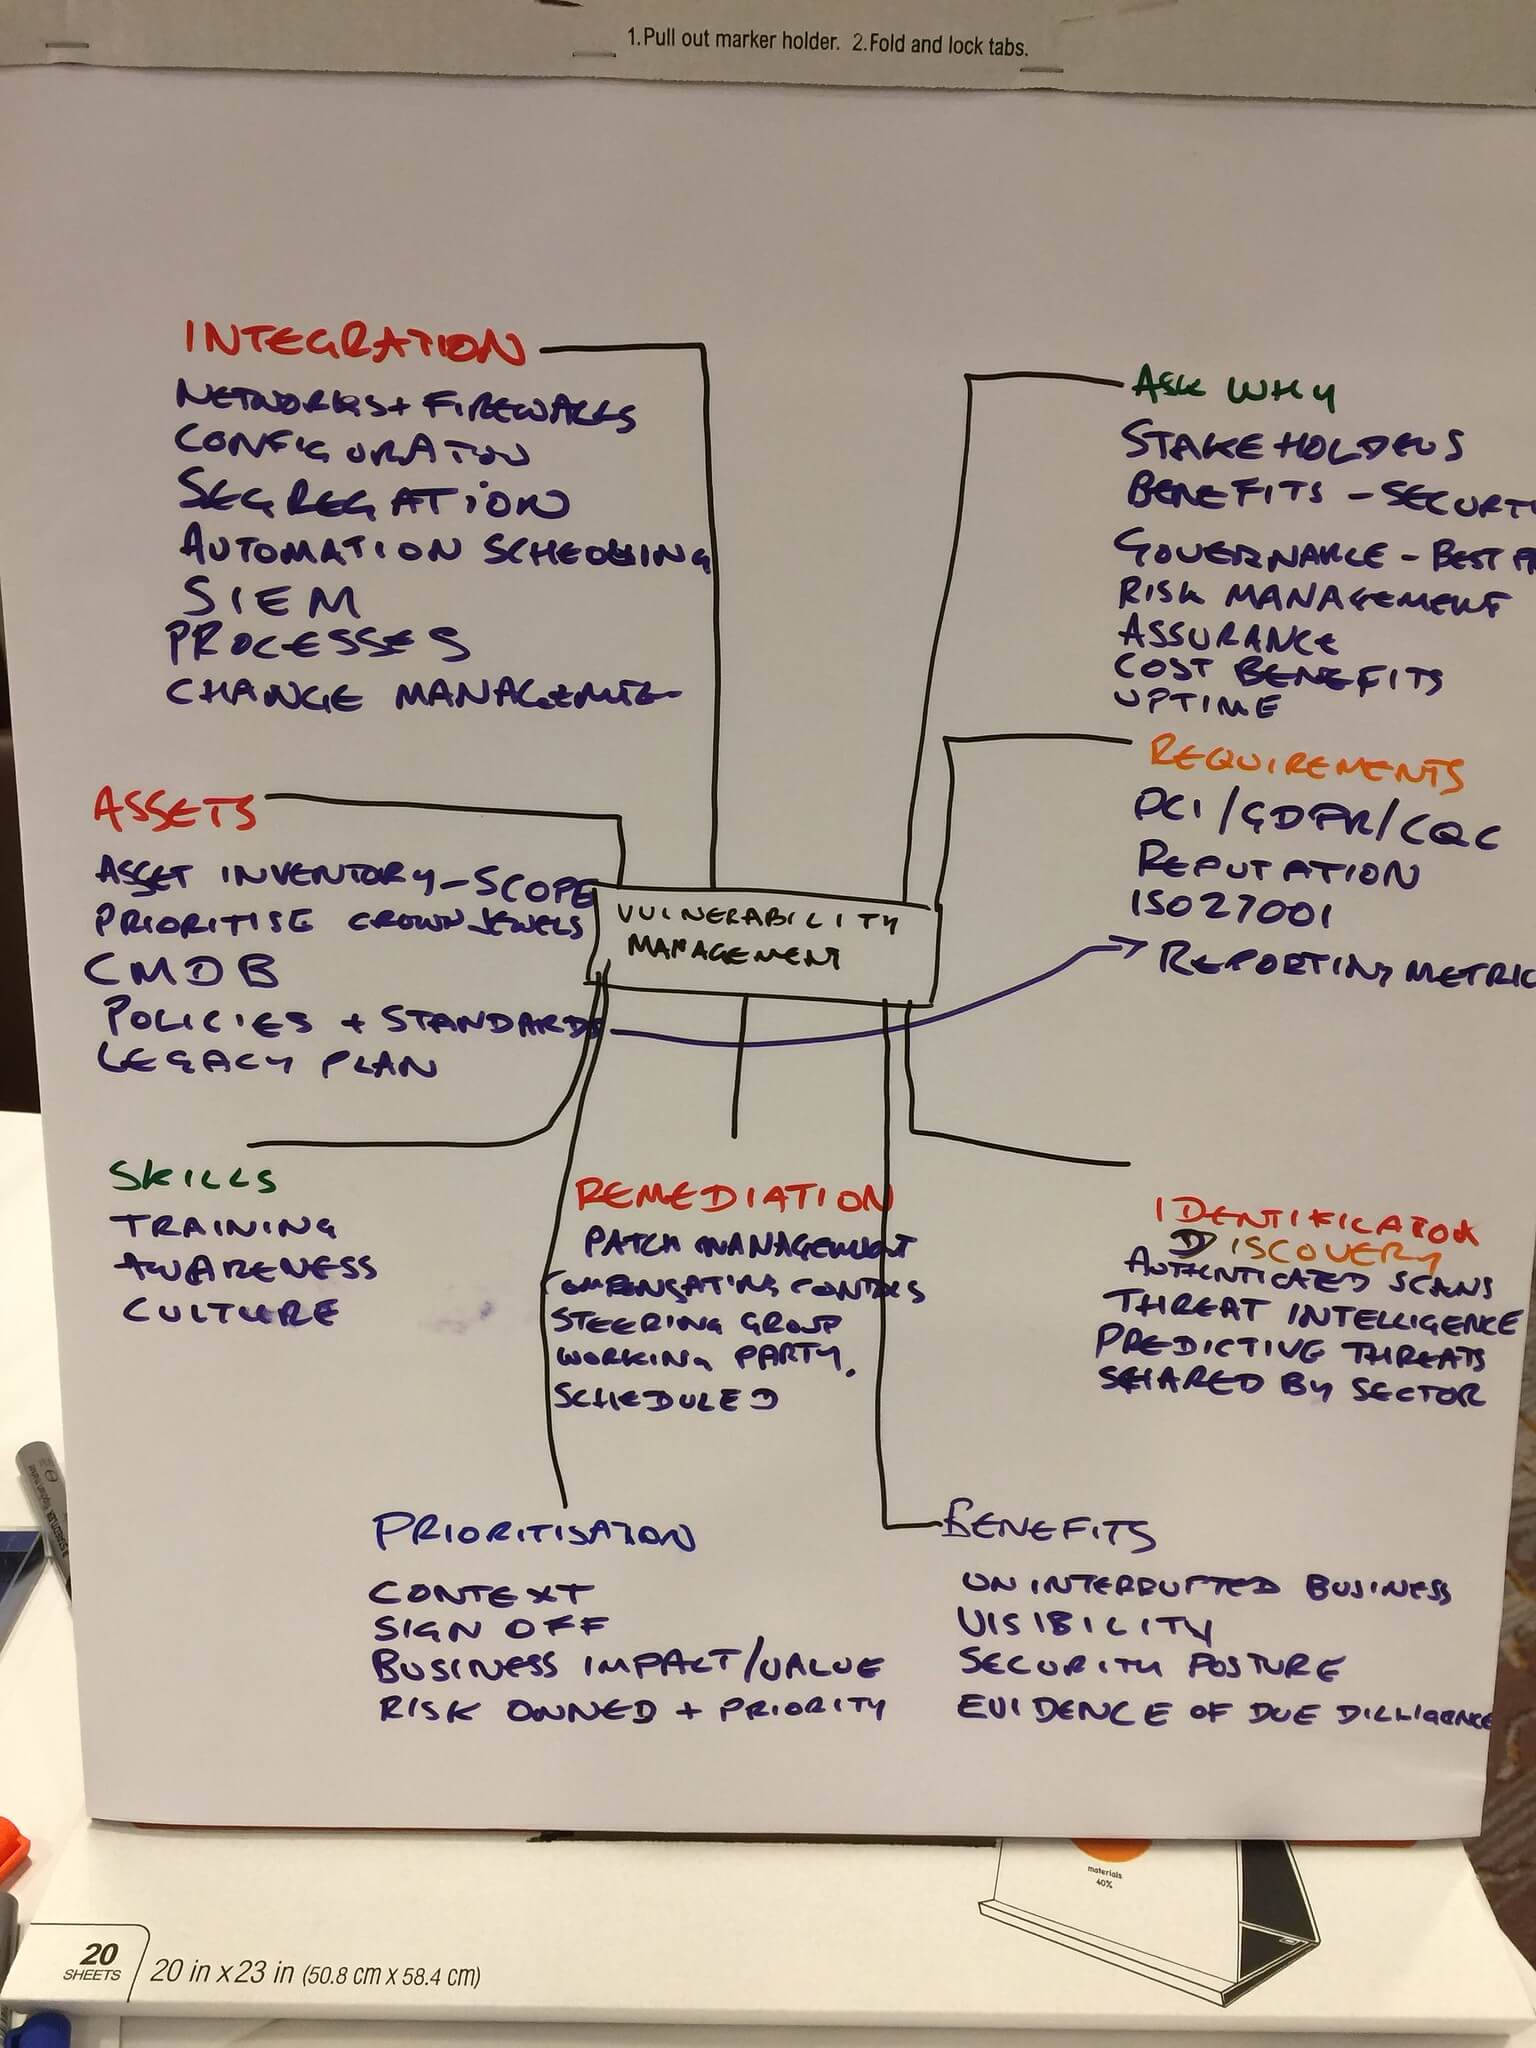 1.Pull out marker holder. 2.Fold and lock tabs.
INTEGRATION
NETWORKS + FIREWALLS
CONFIGURATION
SEGREGATION
AUTOMATION SCHEDULING
SIEM
PROCESSES
CHANGE MANAGEMENT
ASK WHY
STAKEHOLDERS
BENEFITS - SECURITY
GOVERNANCE - BEST
RISK MANAGEMENT
ASSURANCE
COST BENEFITS
UPTIME
ASSETS
ASSET INVENTORY - SCOPE
PRIORITISE CROWN JEWELS
CMDB
POLICIES + STANDARDS
LEGACY PLAN
VULNERABILITY
MANAGEMENT
REQUIREMENTS
PCI/GDPR/CQC
REPUTATION
ISO27001
REPORTING METRIC
SKILLS
TRAINING
AWARENESS
CULTURE
REMEDIATION
PATCH MANAGEMENT
COMPENSATING CONTROLS
STEERING GROUP
WORKING PARTY.
SCHEDULED
IDENTIFICATION
DISCOVERY
AUTHENTICATED SCANS
THREAT INTELLIGENCE
PREDICTIVE THREATS
SHARED BY SECTOR
PRIORITISATION
CONTEXT
SIGN OFF
BUSINESS IMPACT/VALUE
RISK OWNED + PRIORITY
BENEFITS
UNINTERRUPTED BUSINESS
VISIBILITY
SECURITY POSTURE
EVIDENCE OF DUE DILLIGENCE
materials
40%
20
SHEETS
20 in x 23 in (50.8 cm x 58.4 cm)